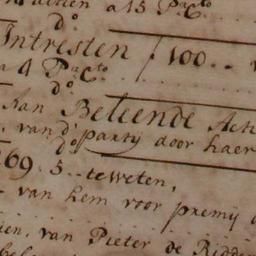 actien a 15 P Cto
do
Intresten / 100..
a 4 P Cto
do
Aan Beleende Acti
van d' partij door haer
do
69. 5.. te weten,
van hem voor premij
van Pieter de Ridder